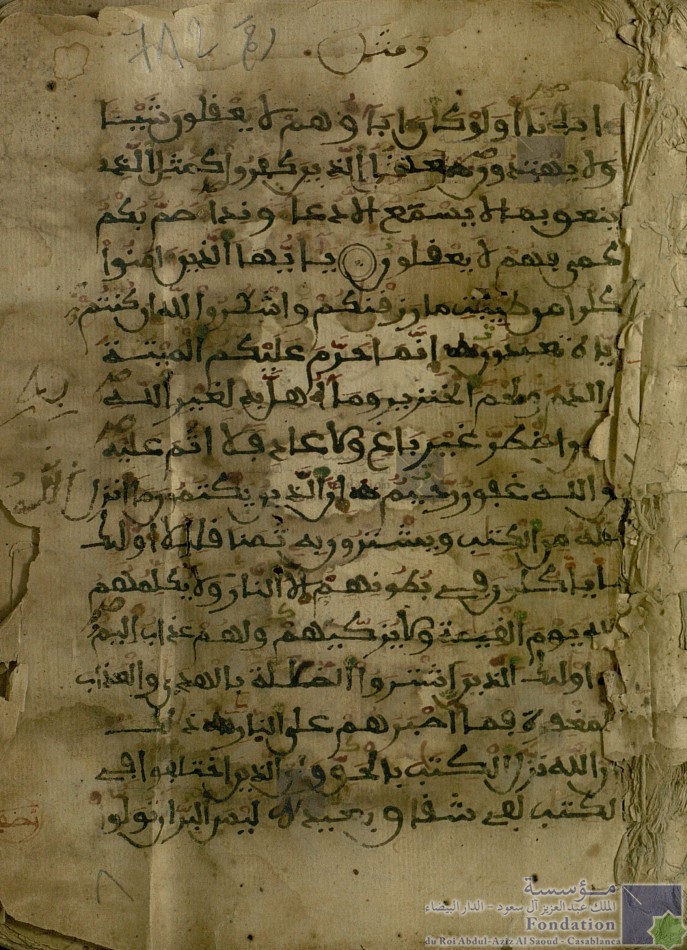 782
ومثل
ءاباءنا اولو كان اباوهم لا يعقلون شيئا
ولا يهتدون ومثل الذين كفروا كمثل الذے
ينعق بما لا يسمع الا دعا وندا صم بكم
عمى فهم لا يعقلون يايها الذين امنوا
كلوا من طيبت ما رزقنكم واشكروا لله ان كنتم
اياه تعبدون انما حرم عليكم الميتة
والدم ولحم الخنزير وما أهل به لغير الله
اضطر غير باغ ولا عاد فلا اثم عليه
ان الله غفور رحيم ان الذين يكتمون ما انزل
الله من الكتب ويشترون به ثمنا قليلا اولىك
ما ياكلون في بطونهم الا النار ولا يكلمهم
الله يوم القيمة ولا يزكيهم ولهم عذاب اليم
اولىك الذين اشتروا الضللة بالهدى والعذاب
بالمغفرة فما اصبرهم على النار ذلك
بان الله نزل الكتب بالحق وان الذين اختلفوا في
الكتب لفي شقاق بعيد ليس البر ان تولوا
مؤسسة
الملك عبد العزيز آل سعود - الدار البيضاء
Fondation
du Roi Abdul-Aziz Al Saoud - Casablanca